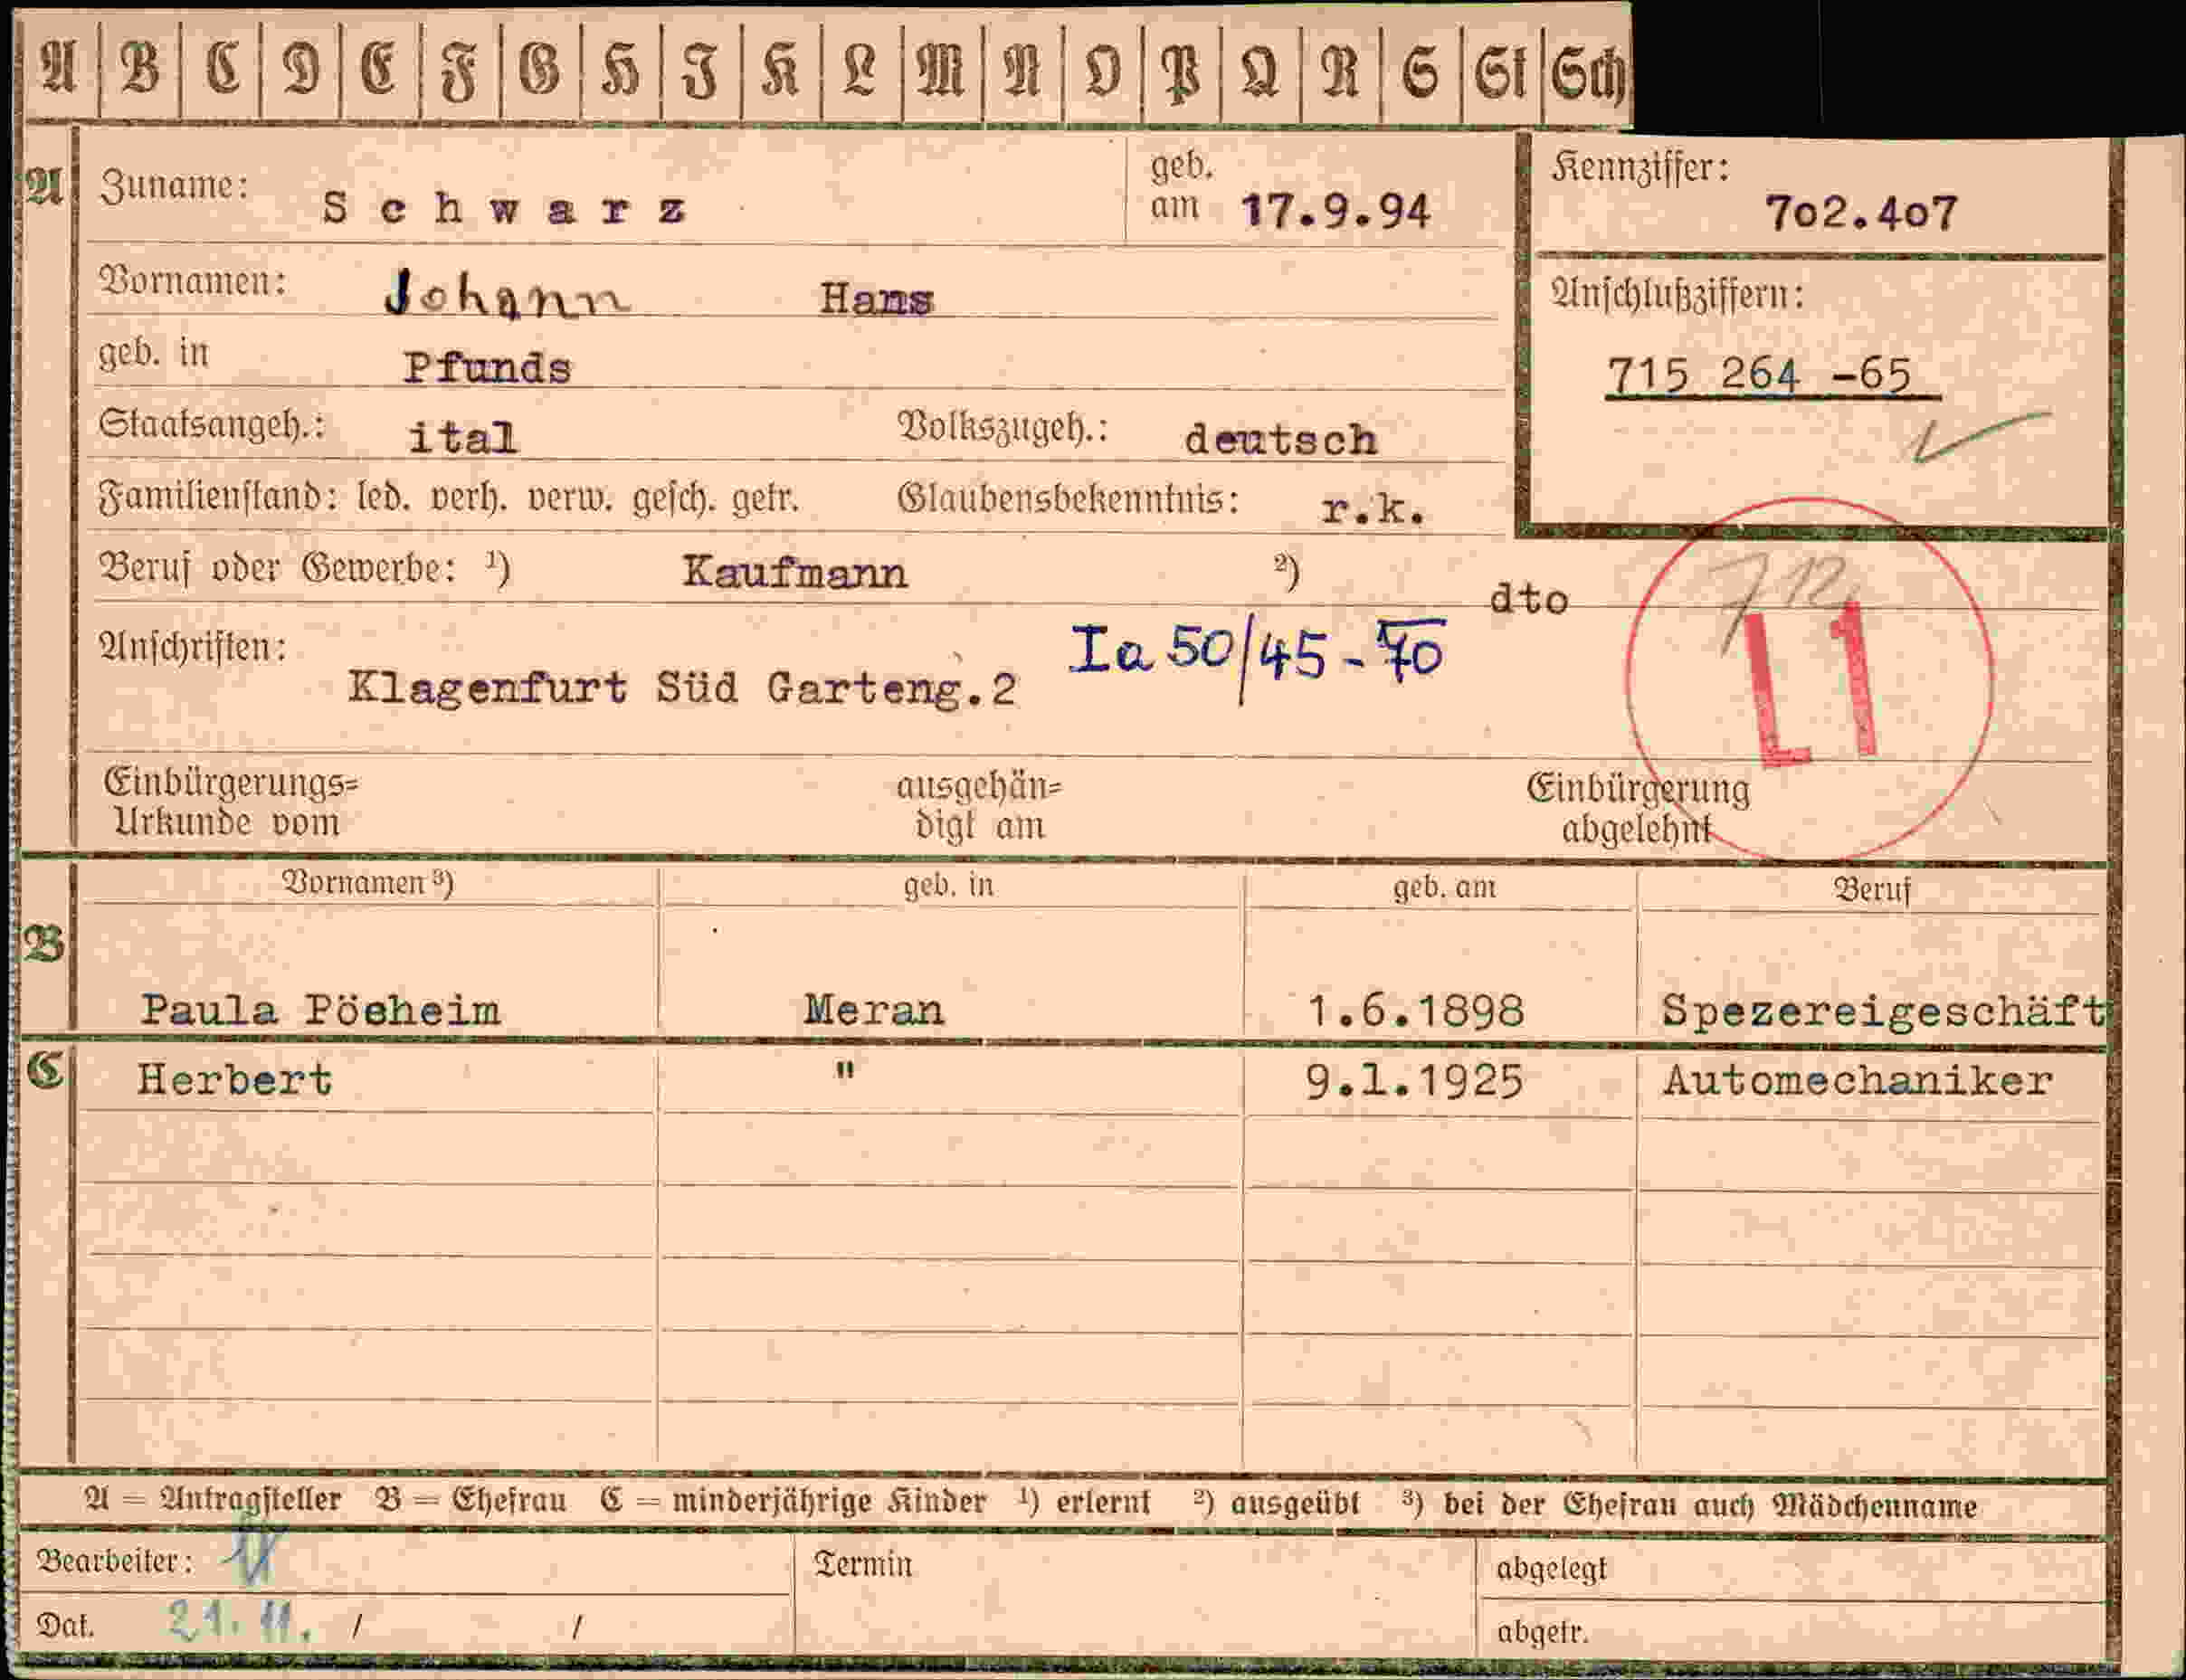 A B C D E F G H I K L M N O P Q R S St Sch
A Zuname: Schwarz geb. am 17.9.94 Kennziffer: 702.407
Vornamen: Johann Hans Anschlußziffern:
geb. in Pfunds 715 264 -65
Staatsangeh.: ital Volkszugeh.: deutsch
Familienstand: led. verh. verw. gesch. getr. Glaubensbekenntnis: r.k.
Beruf oder Gewerbe: ¹) Kaufmann ²) dto 712
Anschriften: Ia 50/45-70 L1
Klagenfurt Süd Garteng.2
Einbürgerungs= ausgehän= Einbürgerung
Urkunde vom digt am abgelehnt
Vornamen ³) geb. in geb. am Beruf
B
Paula Pöeheim Meran 1.6.1898 Spezereigeschäft
C Herbert " 9.1.1925 Automechaniker
A = Antragsteller B = Ehefrau C = minderjährige Kinder ¹) erlernt ²) ausgeübt ³) bei der Ehefrau auch Mädchenname
Bearbeiter: Termin abgelegt
Dat. 21.11. / / abgetr.